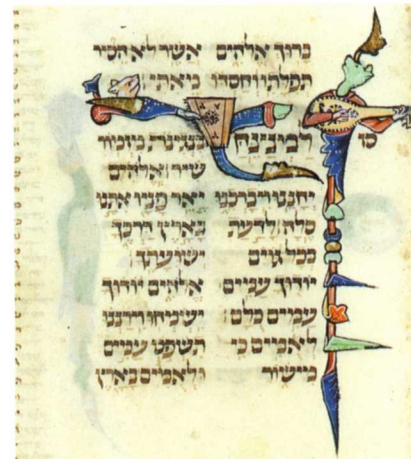 ברוך אלהים אשר לא הסיר
תפלתי וחסדו מאתי
סז למנצח בנגינת מזמור
שיר אלהים
יחננו ויברכנו יאר פניו אתנו
סלה לדעת בארץ דרכך
בכל גוים ישועתך
יודוך עמים אלהים יודוך
עמים כלם ישמחו וירננו
לאמים כי תשפט עמים
מישור ולאמים בארץ